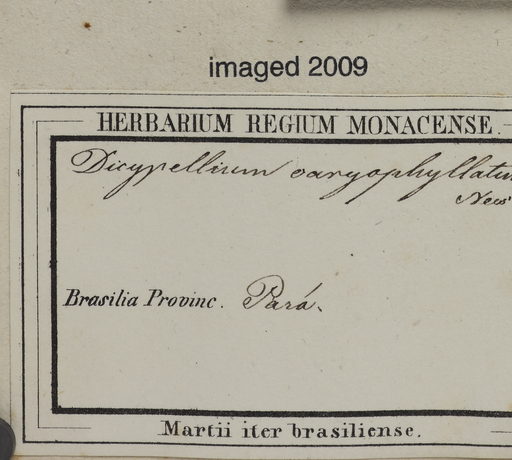 imaged 2009
HERBARIUM REGIUM MONACENSE.
Dicypellium caryophyllatu
Nees
Brasilia Provinc. Pará.
Martii iter brasiliense.